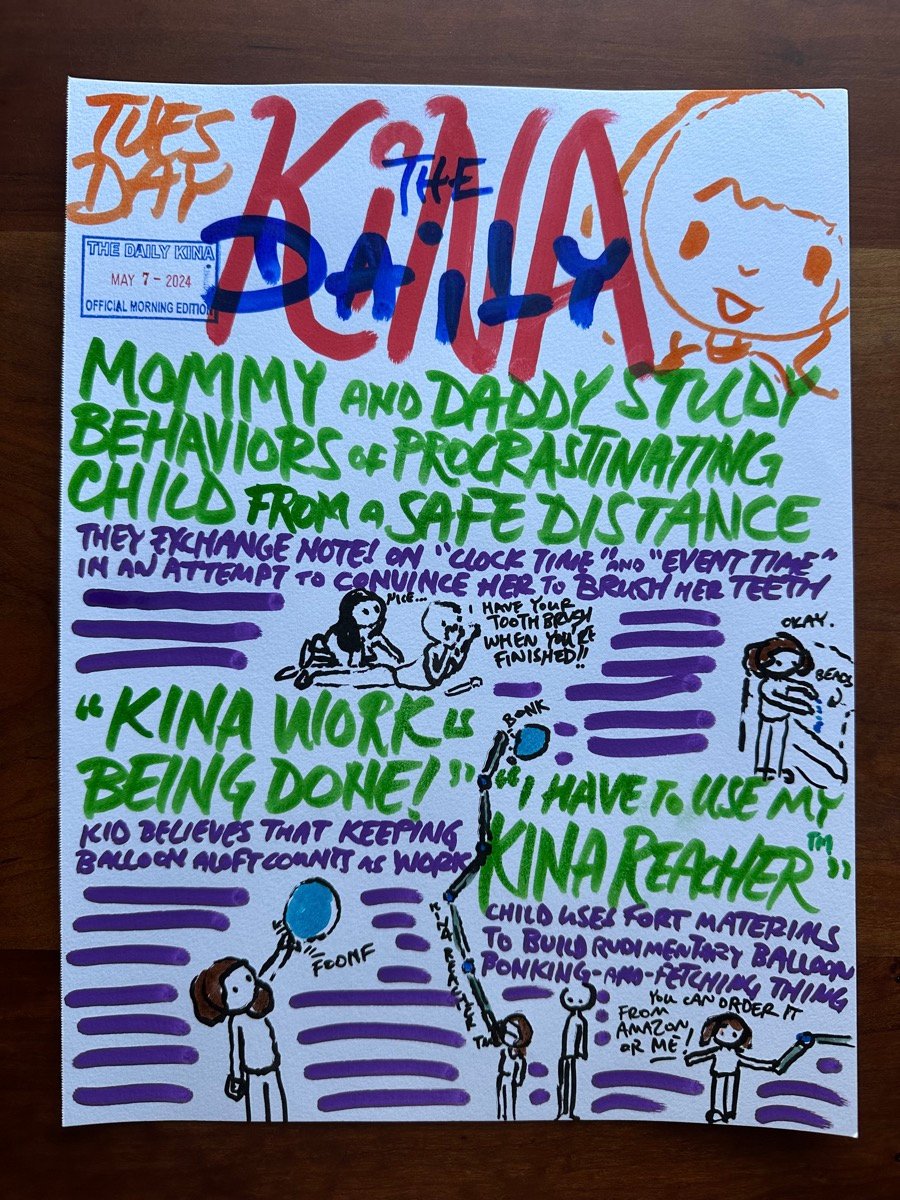 TUES
DAY
THE DAILY KINA
MAY 7-2024
OFFICIAL MORNING EDITION
THE
DAILY
KINA
MOMMY AND DADDY STUDY
BEHAVIORS OF PROCRASTINATING
CHILD FROM A SAFE DISTANCE
THEY EXCHANGE NOTES ON "CLOCK TIME" AND "EVENT TIME"
IN AN ATTEMPT TO CONVINCE HER TO BRUSH HER TEETH
NICE...
I HAVE YOUR
TOOTHBRUSH
WHEN YOU'RE
FINISHED!!
OKAY.
BEADS
"KINA WORK IS
BEING DONE!"
KID BELIEVES THAT KEEPING
BALLOON ALOFT COUNTS AS WORK
FOOMF
BONK
KINA REACHER
TM
"I HAVE TO USE MY
KINA REACHER™"
CHILD USES FORT MATERIALS
TO BUILD RUDIMENTARY BALLOON
BONKING-AND-FETCHING THING
YOU CAN ORDER IT
FROM
AMAZON
OR ME!